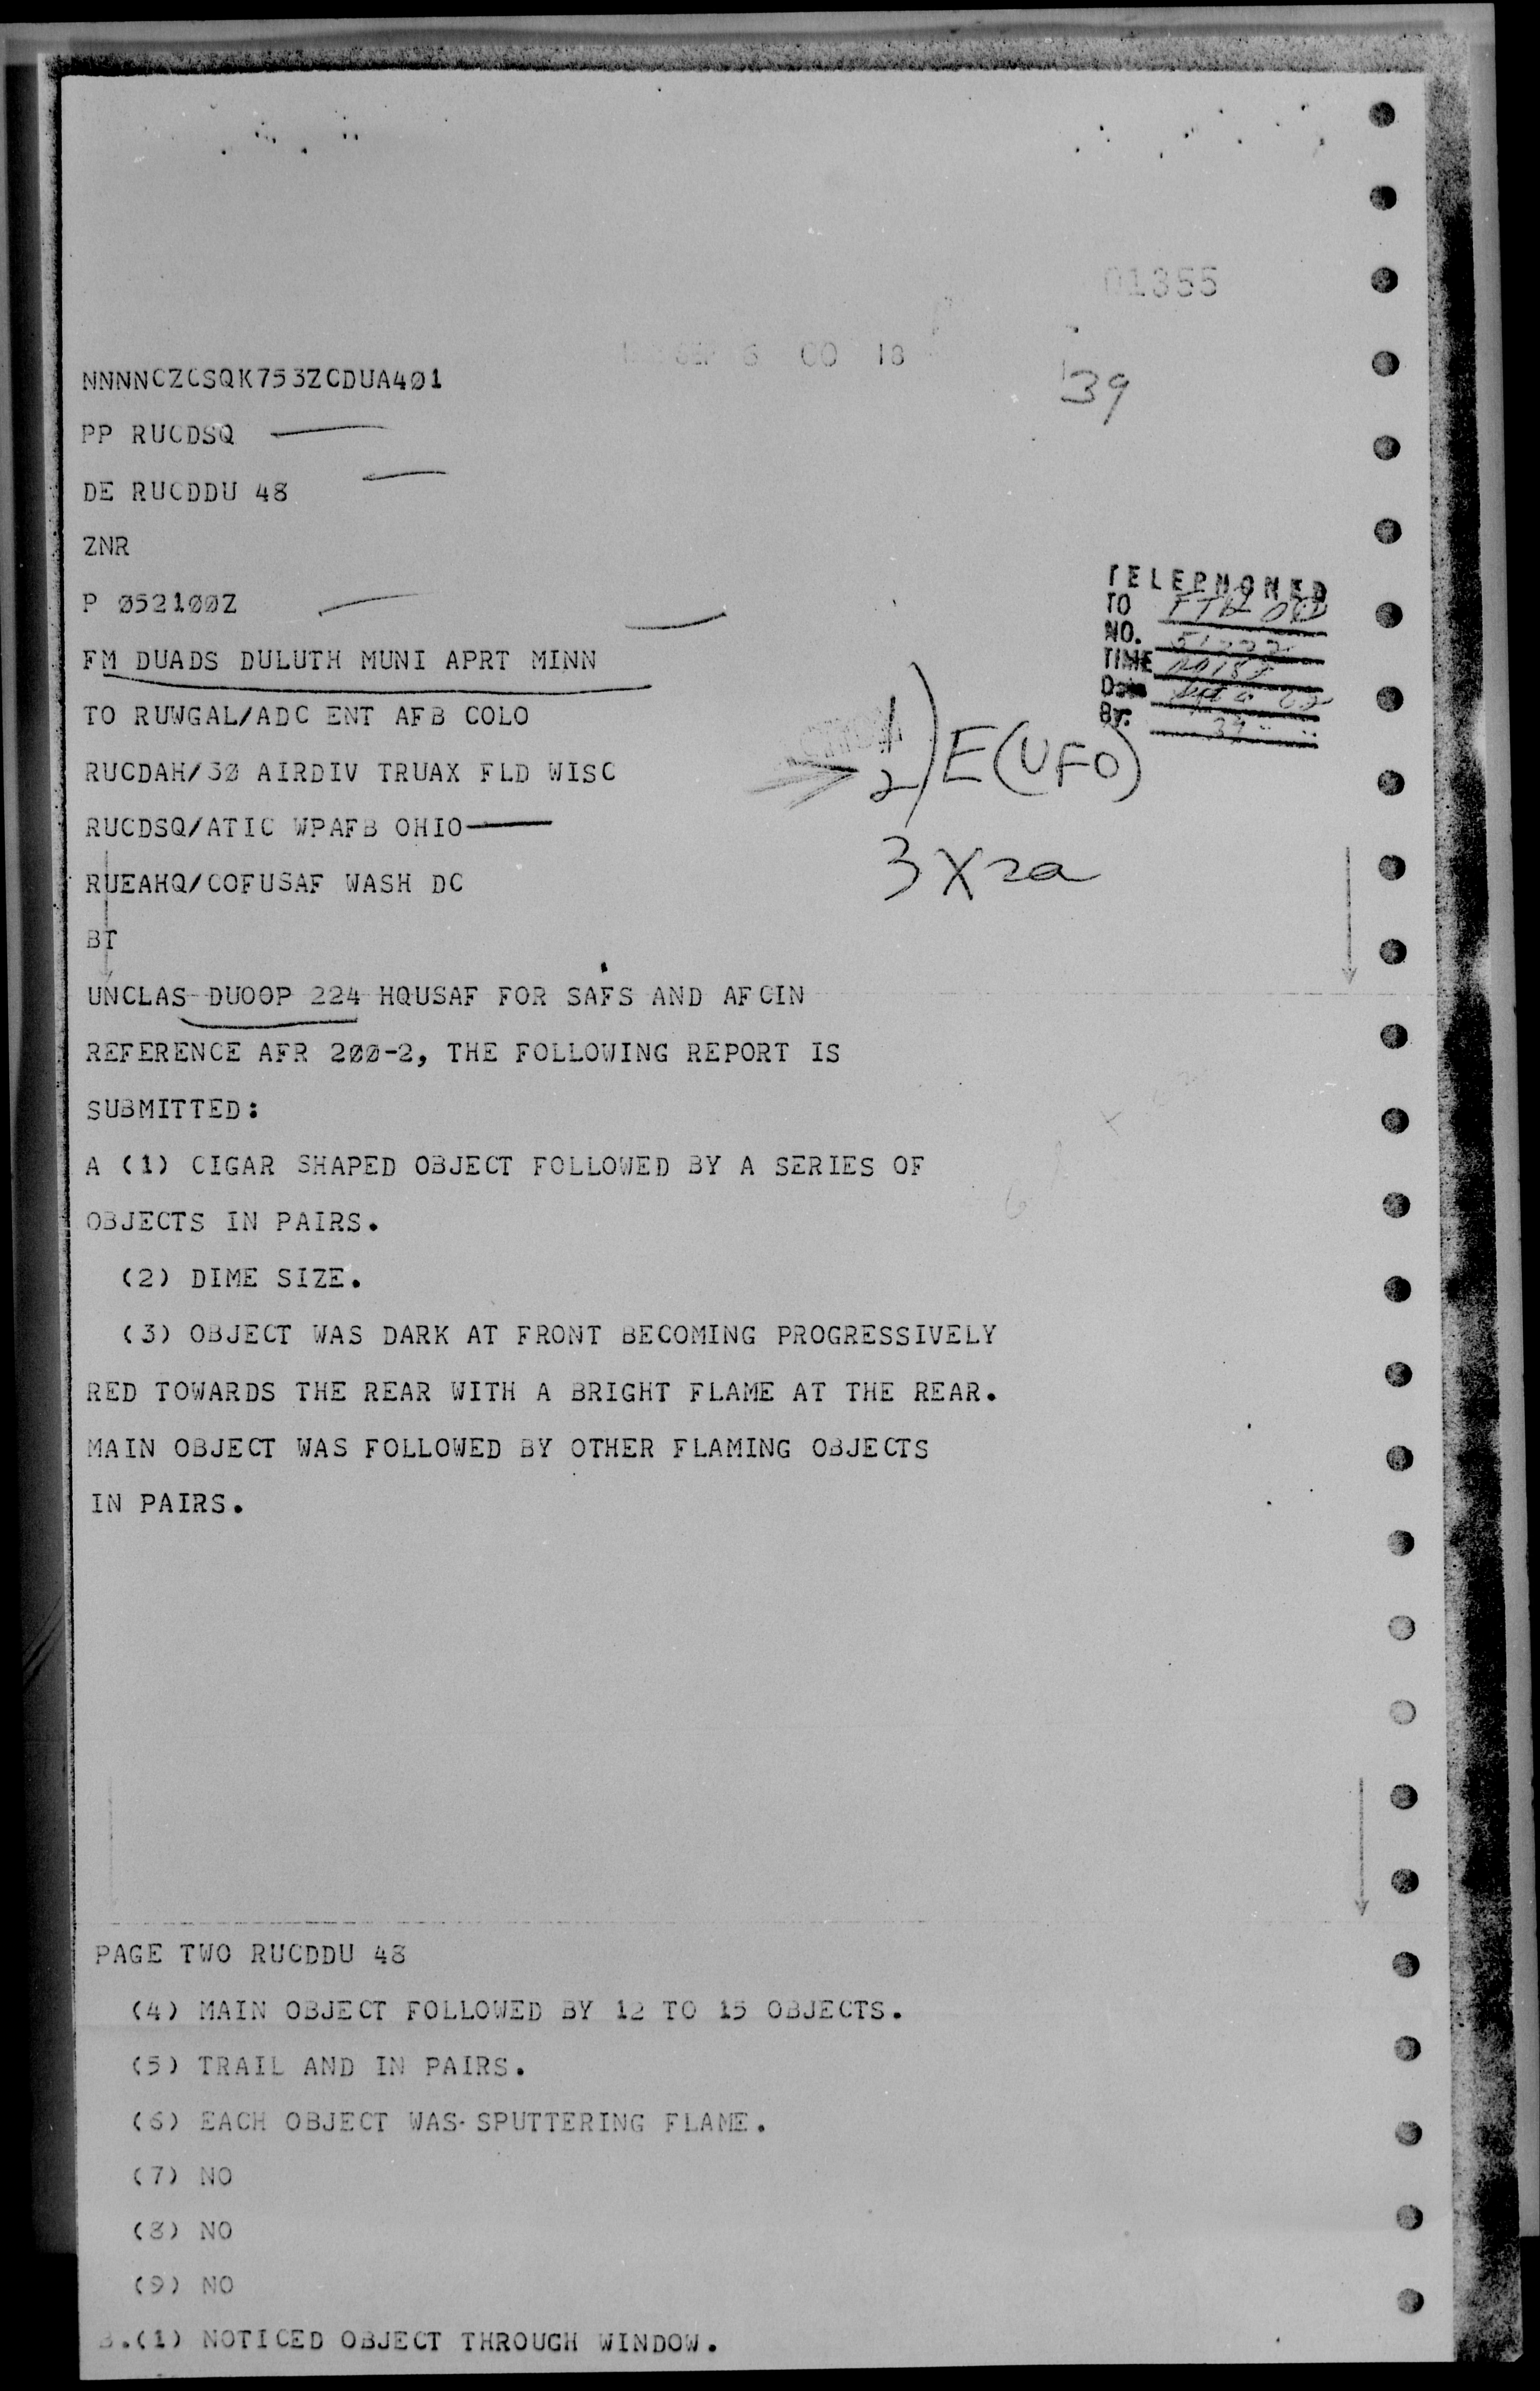 01355
SEP 6 00 18
39
NNNNCZCSQK753ZCDUA401
PP RUCDSQ
DE RUCDDU 48
ZNR
P 052100Z
FM DUADS DULUTH MUNI APRT MINN
TO RUWGAL/ADC ENT AFB COLO
RUCDAH/30 AIRDIV TRUAX FLD WISC
RUCDSQ/ATIC WPAFB OHIO
RUEAHQ/COFUSAF WASH DC
BT
TELEPHONED
TO
NO.
TIME
Date
By. 39
1
2) E(UFO)
3 X2a
UNCLAS DUOOP 224 HQUSAF FOR SAFS AND AFCIN
REFERENCE AFR 200-2, THE FOLLOWING REPORT IS
SUBMITTED:
A (1) CIGAR SHAPED OBJECT FOLLOWED BY A SERIES OF
OBJECTS IN PAIRS.
(2) DIME SIZE.
(3) OBJECT WAS DARK AT FRONT BECOMING PROGRESSIVELY
RED TOWARDS THE REAR WITH A BRIGHT FLAME AT THE REAR.
MAIN OBJECT WAS FOLLOWED BY OTHER FLAMING OBJECTS
IN PAIRS.
PAGE TWO RUCDDU 48
(4) MAIN OBJECT FOLLOWED BY 12 TO 15 OBJECTS.
(5) TRAIL AND IN PAIRS.
(6) EACH OBJECT WAS SPUTTERING FLAME.
(7) NO
(8) NO
(9) NO
B.(1) NOTICED OBJECT THROUGH WINDOW.